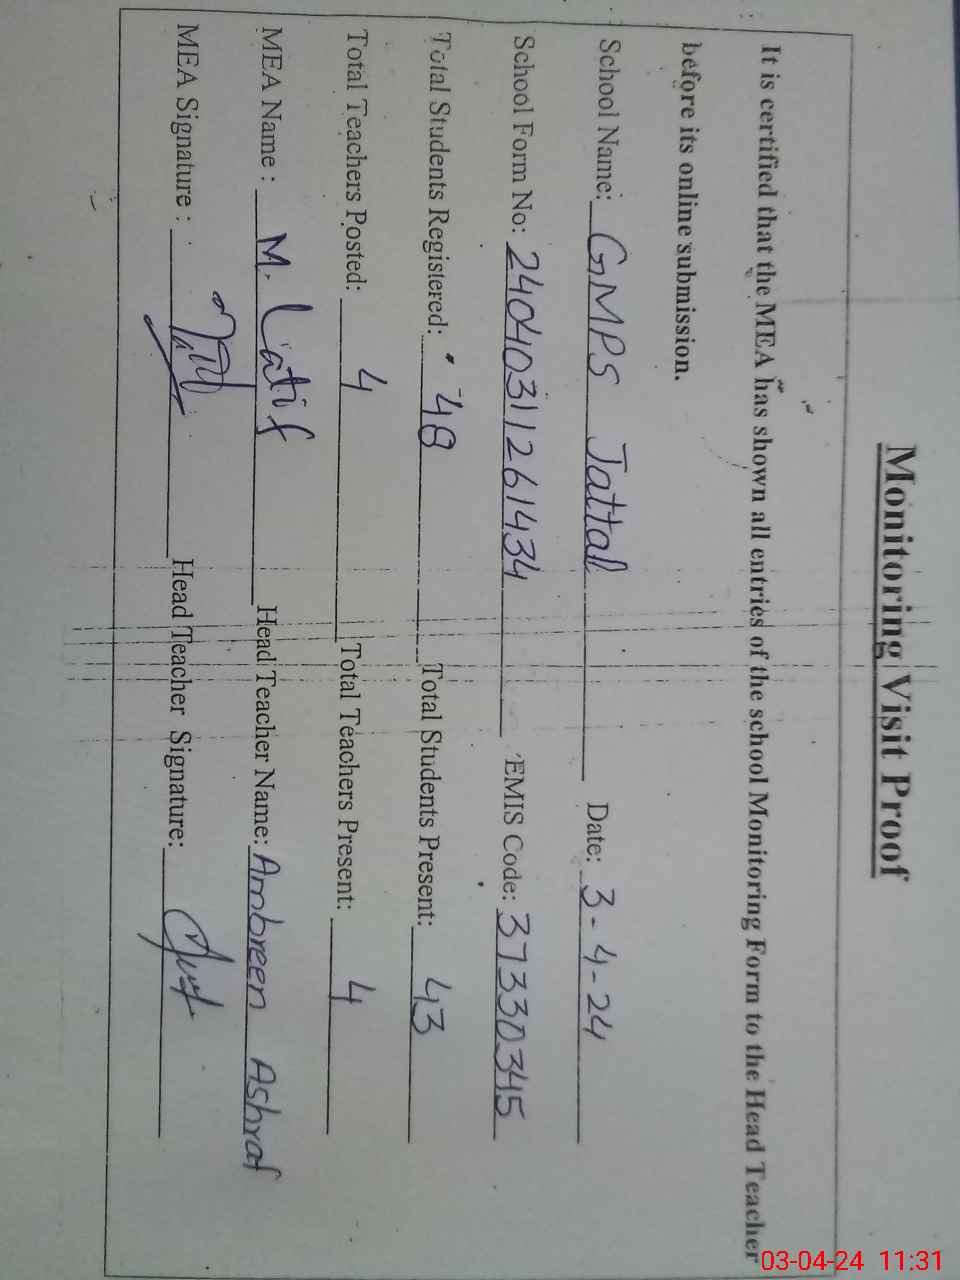 Monitoring Visit Proof
It is certified that the MEA has shown all entries of the school Monitoring Form to the Head Teacher
before its online submission.
School Name: GMPS Jattal Date: 3-4-24
School Form No: 24040311261434 EMIS Code: 37330345
Total Students Registered: 48 Total Students Present: 43
Total Teachers Posted: 4 Total Teachers Present: 4
MEA Name : M. Latif Head Teacher Name: Ambreen Ashraf
MEA Signature : Head Teacher Signature:
03-04-24 11:31